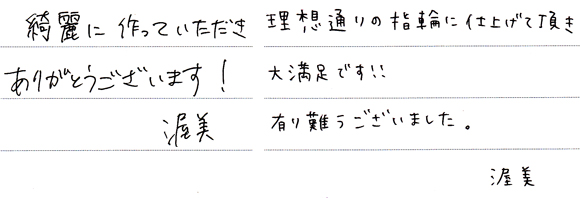 綺麗に作っていただき
ありがとうございます！
渥美
理想通りの指輪に仕上げて頂き
大満足です!!
有り難うございました。
渥美